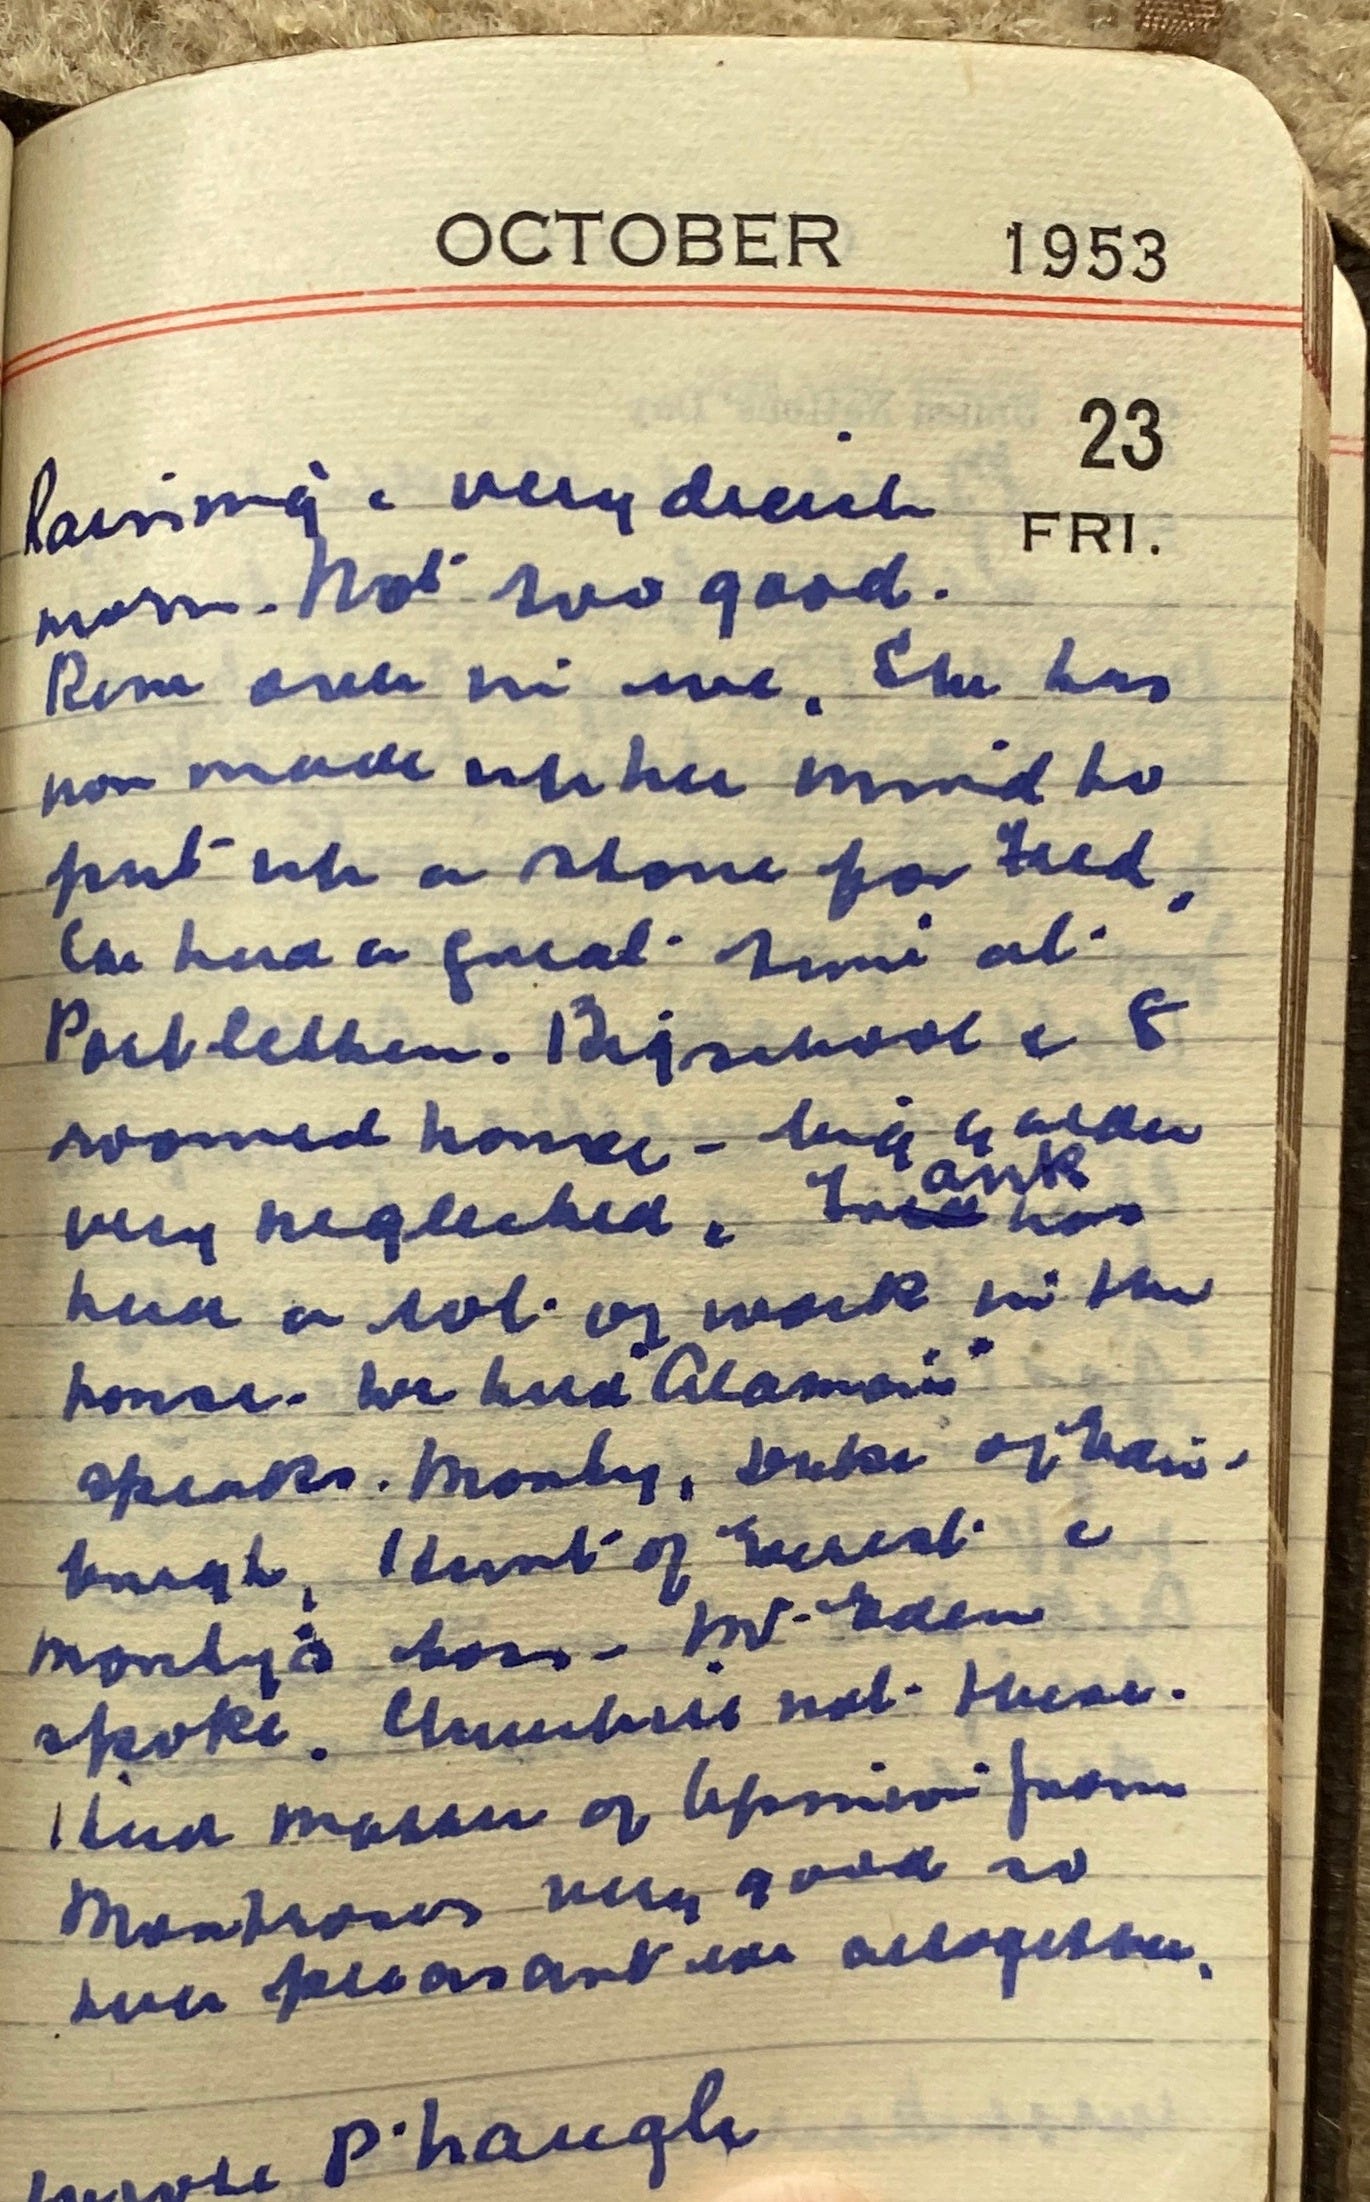 OCTOBER 1953
23
FRI.
Raining & very dreich
morn. Not too good.
Rena over in eve. She has
now made up her mind to
put up a stone for Fred.
She had a great time at
Portlethen. Big school & 8
roomed house - big garden
very neglected. Frank has
had a lot of work in the
house. We had "Alamein"
speaks. Monty, Duke of Edin-
burgh, Hunt of Everest &
Monty's boss. Mr Eden
spoke. Churchill not there.
Had Matter of Opinion from
Montrose very good so
had pleasant eve altogether.
wrote P'haugh